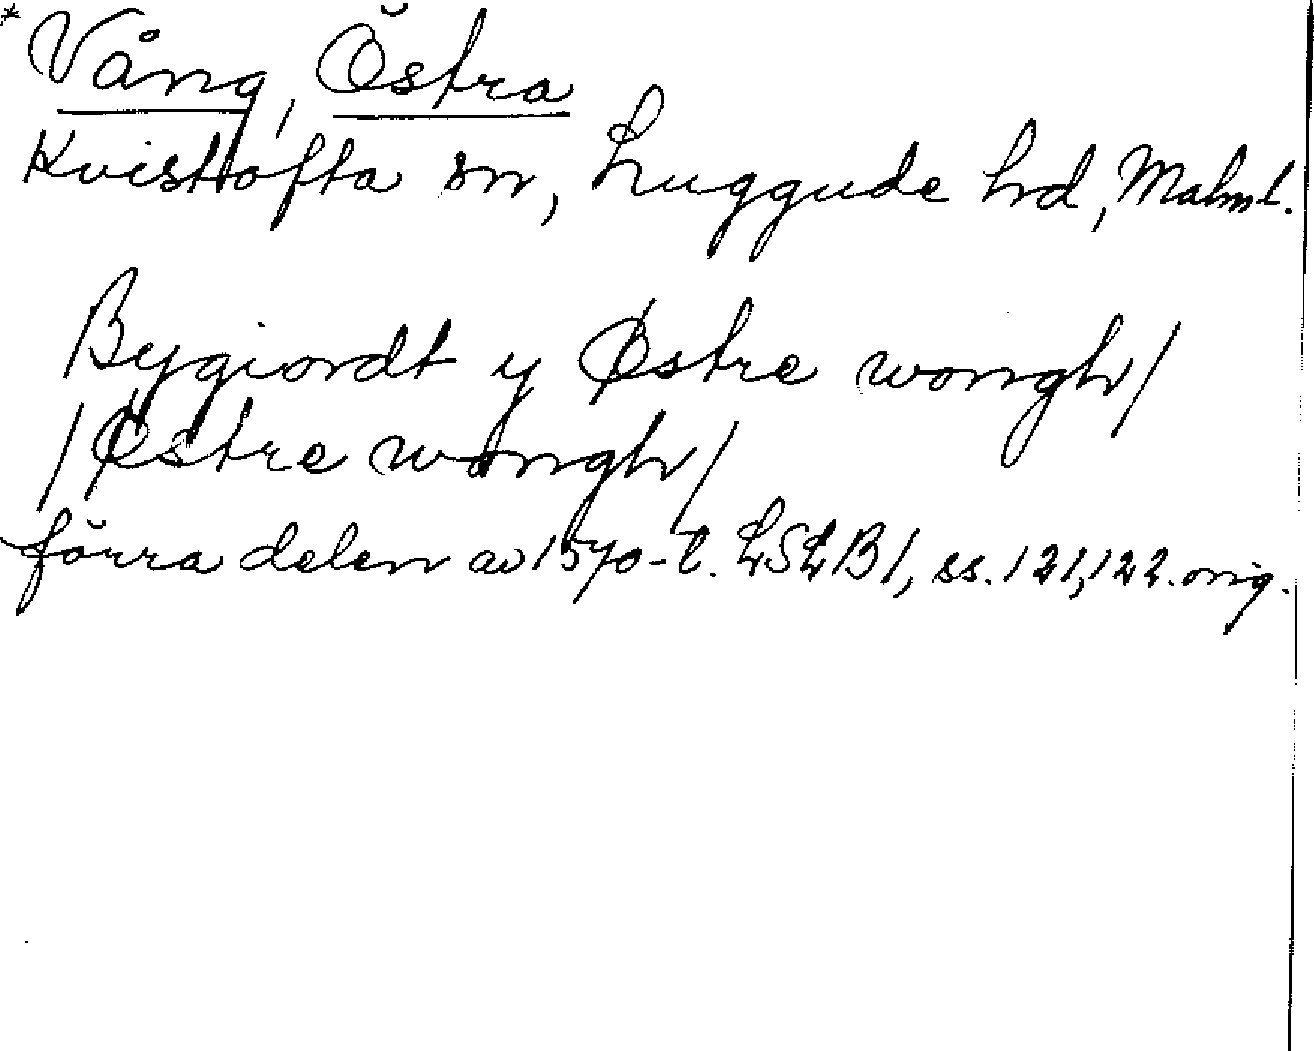 * Vång, Östra
Kvistofta sn, Luggude hd, Malm l.
Bygiordt y Østre wongh/
/Østre wongh/
förra delen av 1570-t. LSLB 1, ss. 121, 122. orig.